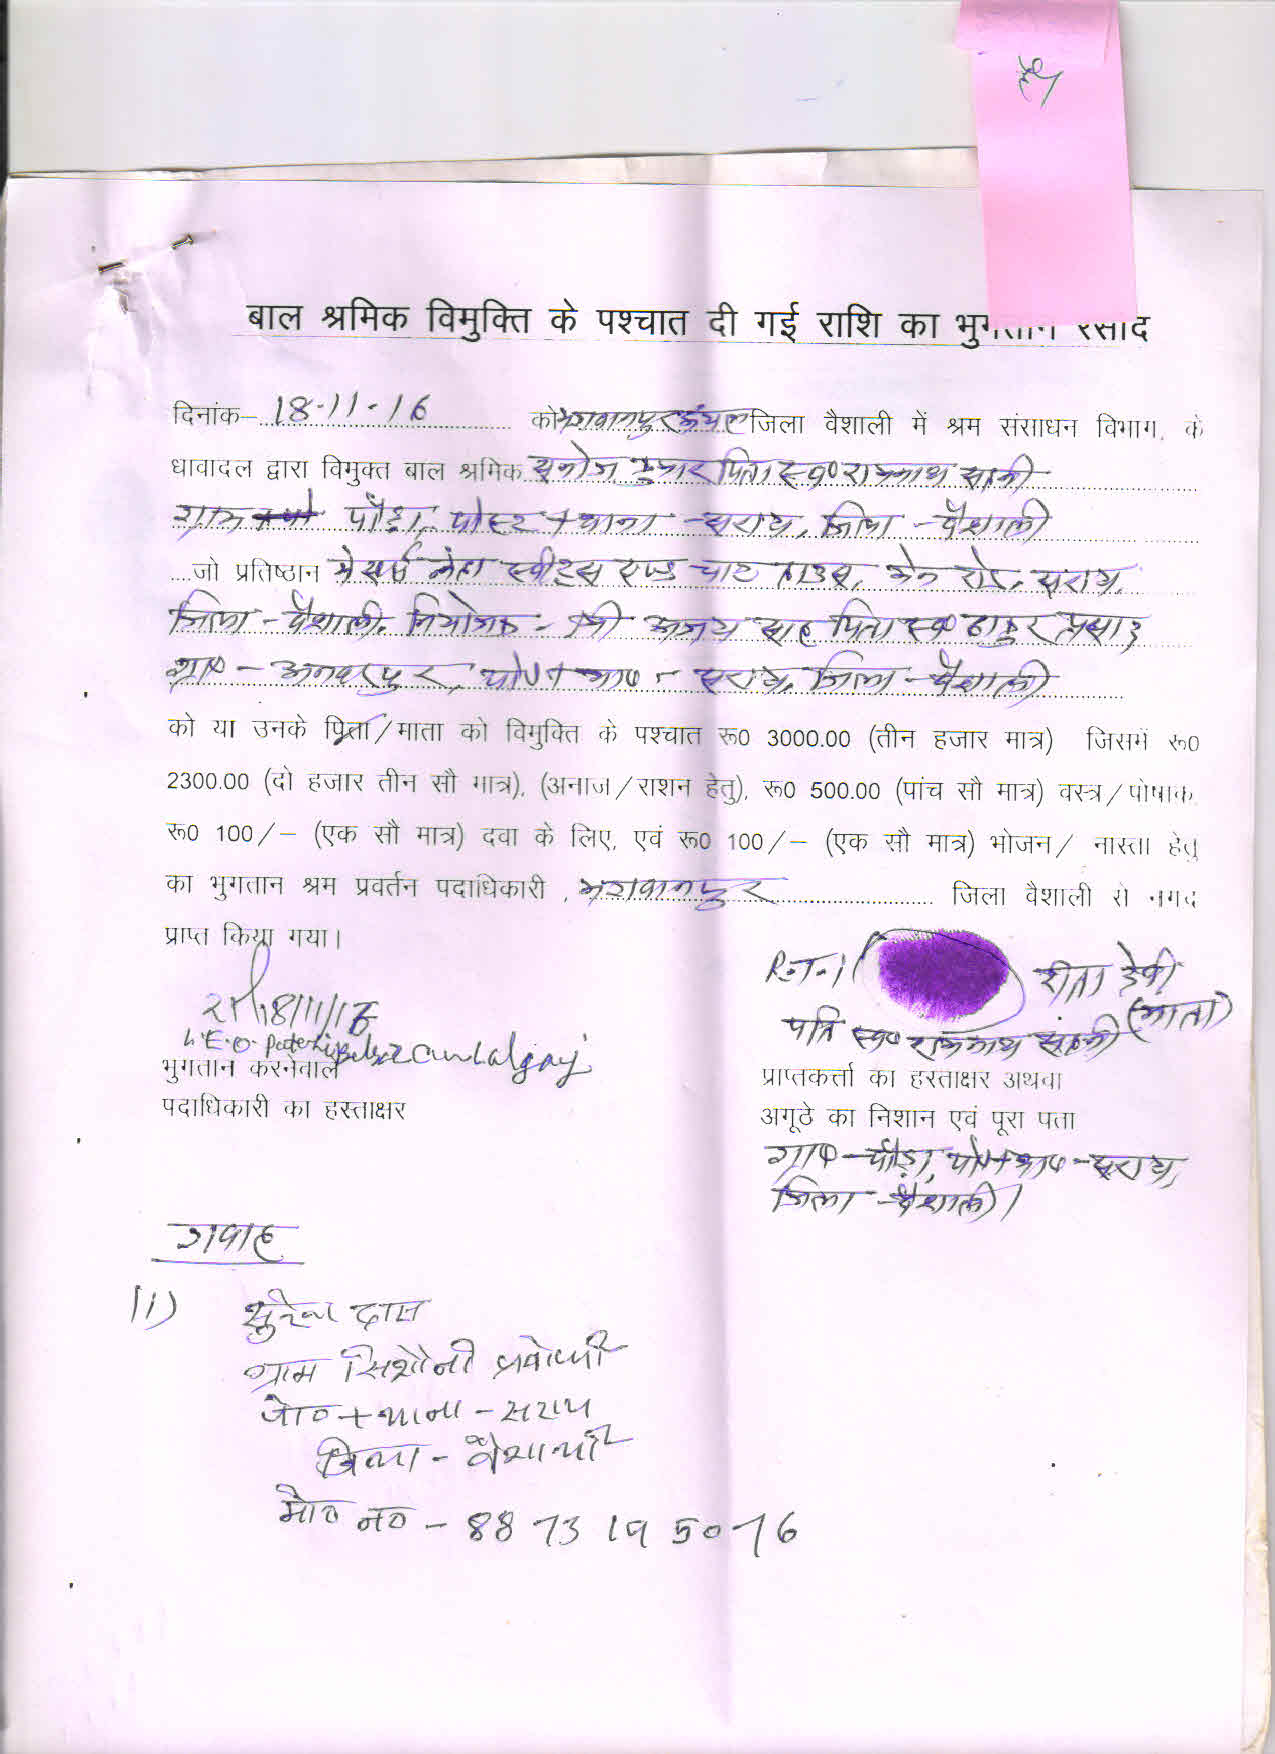 बाल श्रमिक विमुक्ति के पश्चात दी गई राशि का भुगतान रसीद
दिनांक– 18-11-16 को भगवानपुर अंचल जिला वैशाली में श्रम संसाधन विभाग, के
धावादल द्वारा विमुक्त बाल श्रमिक मनोज कुमार पिता स्व० रामनाथ सहनी
ग्राम पौड़ा, पोस्ट + थाना - सराय, जिला - वैशाली
....जो प्रतिष्ठान मेसर्स नेहा स्वीट्स एण्ड चाट हाउस, मेन रोड, सराय,
जिला - वैशाली, नियोजक - श्री अजय साह पिता स्व० ठाकुर प्रसाद
ग्रा० - अनवरपुर, पो०+था० - सराय, जिला - वैशाली
को या उनके पिता/माता को विमुक्ति के पश्चात रू0 3000.00 (तीन हजार मात्र) जिसमें रू0
2300.00 (दो हजार तीन सौ मात्र), (अनाज/राशन हेतु), रू0 500.00 (पांच सौ मात्र) वस्त्र/पोषाक,
रू0 100/– (एक सौ मात्र) दवा के लिए, एवं रू0 100/– (एक सौ मात्र) भोजन/ नास्ता हेतु
का भुगतान श्रम प्रवर्तन पदाधिकारी , भगवानपुर जिला वैशाली से नगद
प्राप्त किया गया।
R.T.I रीता देवी
(माता)
पति स्व० रामनाथ सहनी
18/11/16
L.E.O.
भुगतान करनेवाले
पदाधिकारी का हस्ताक्षर
प्राप्तकर्त्ता का हस्ताक्षर अथवा
अगूठे का निशान एवं पूरा पता
ग्रा० - पौड़ा, पो०+था० - सराय,
जिला - वैशाली।
गवाह
(1) सुरेन्द्र दास
ग्राम
पो० + थाना - सराय
जिला - वैशाली
मो० न० - 8873195076